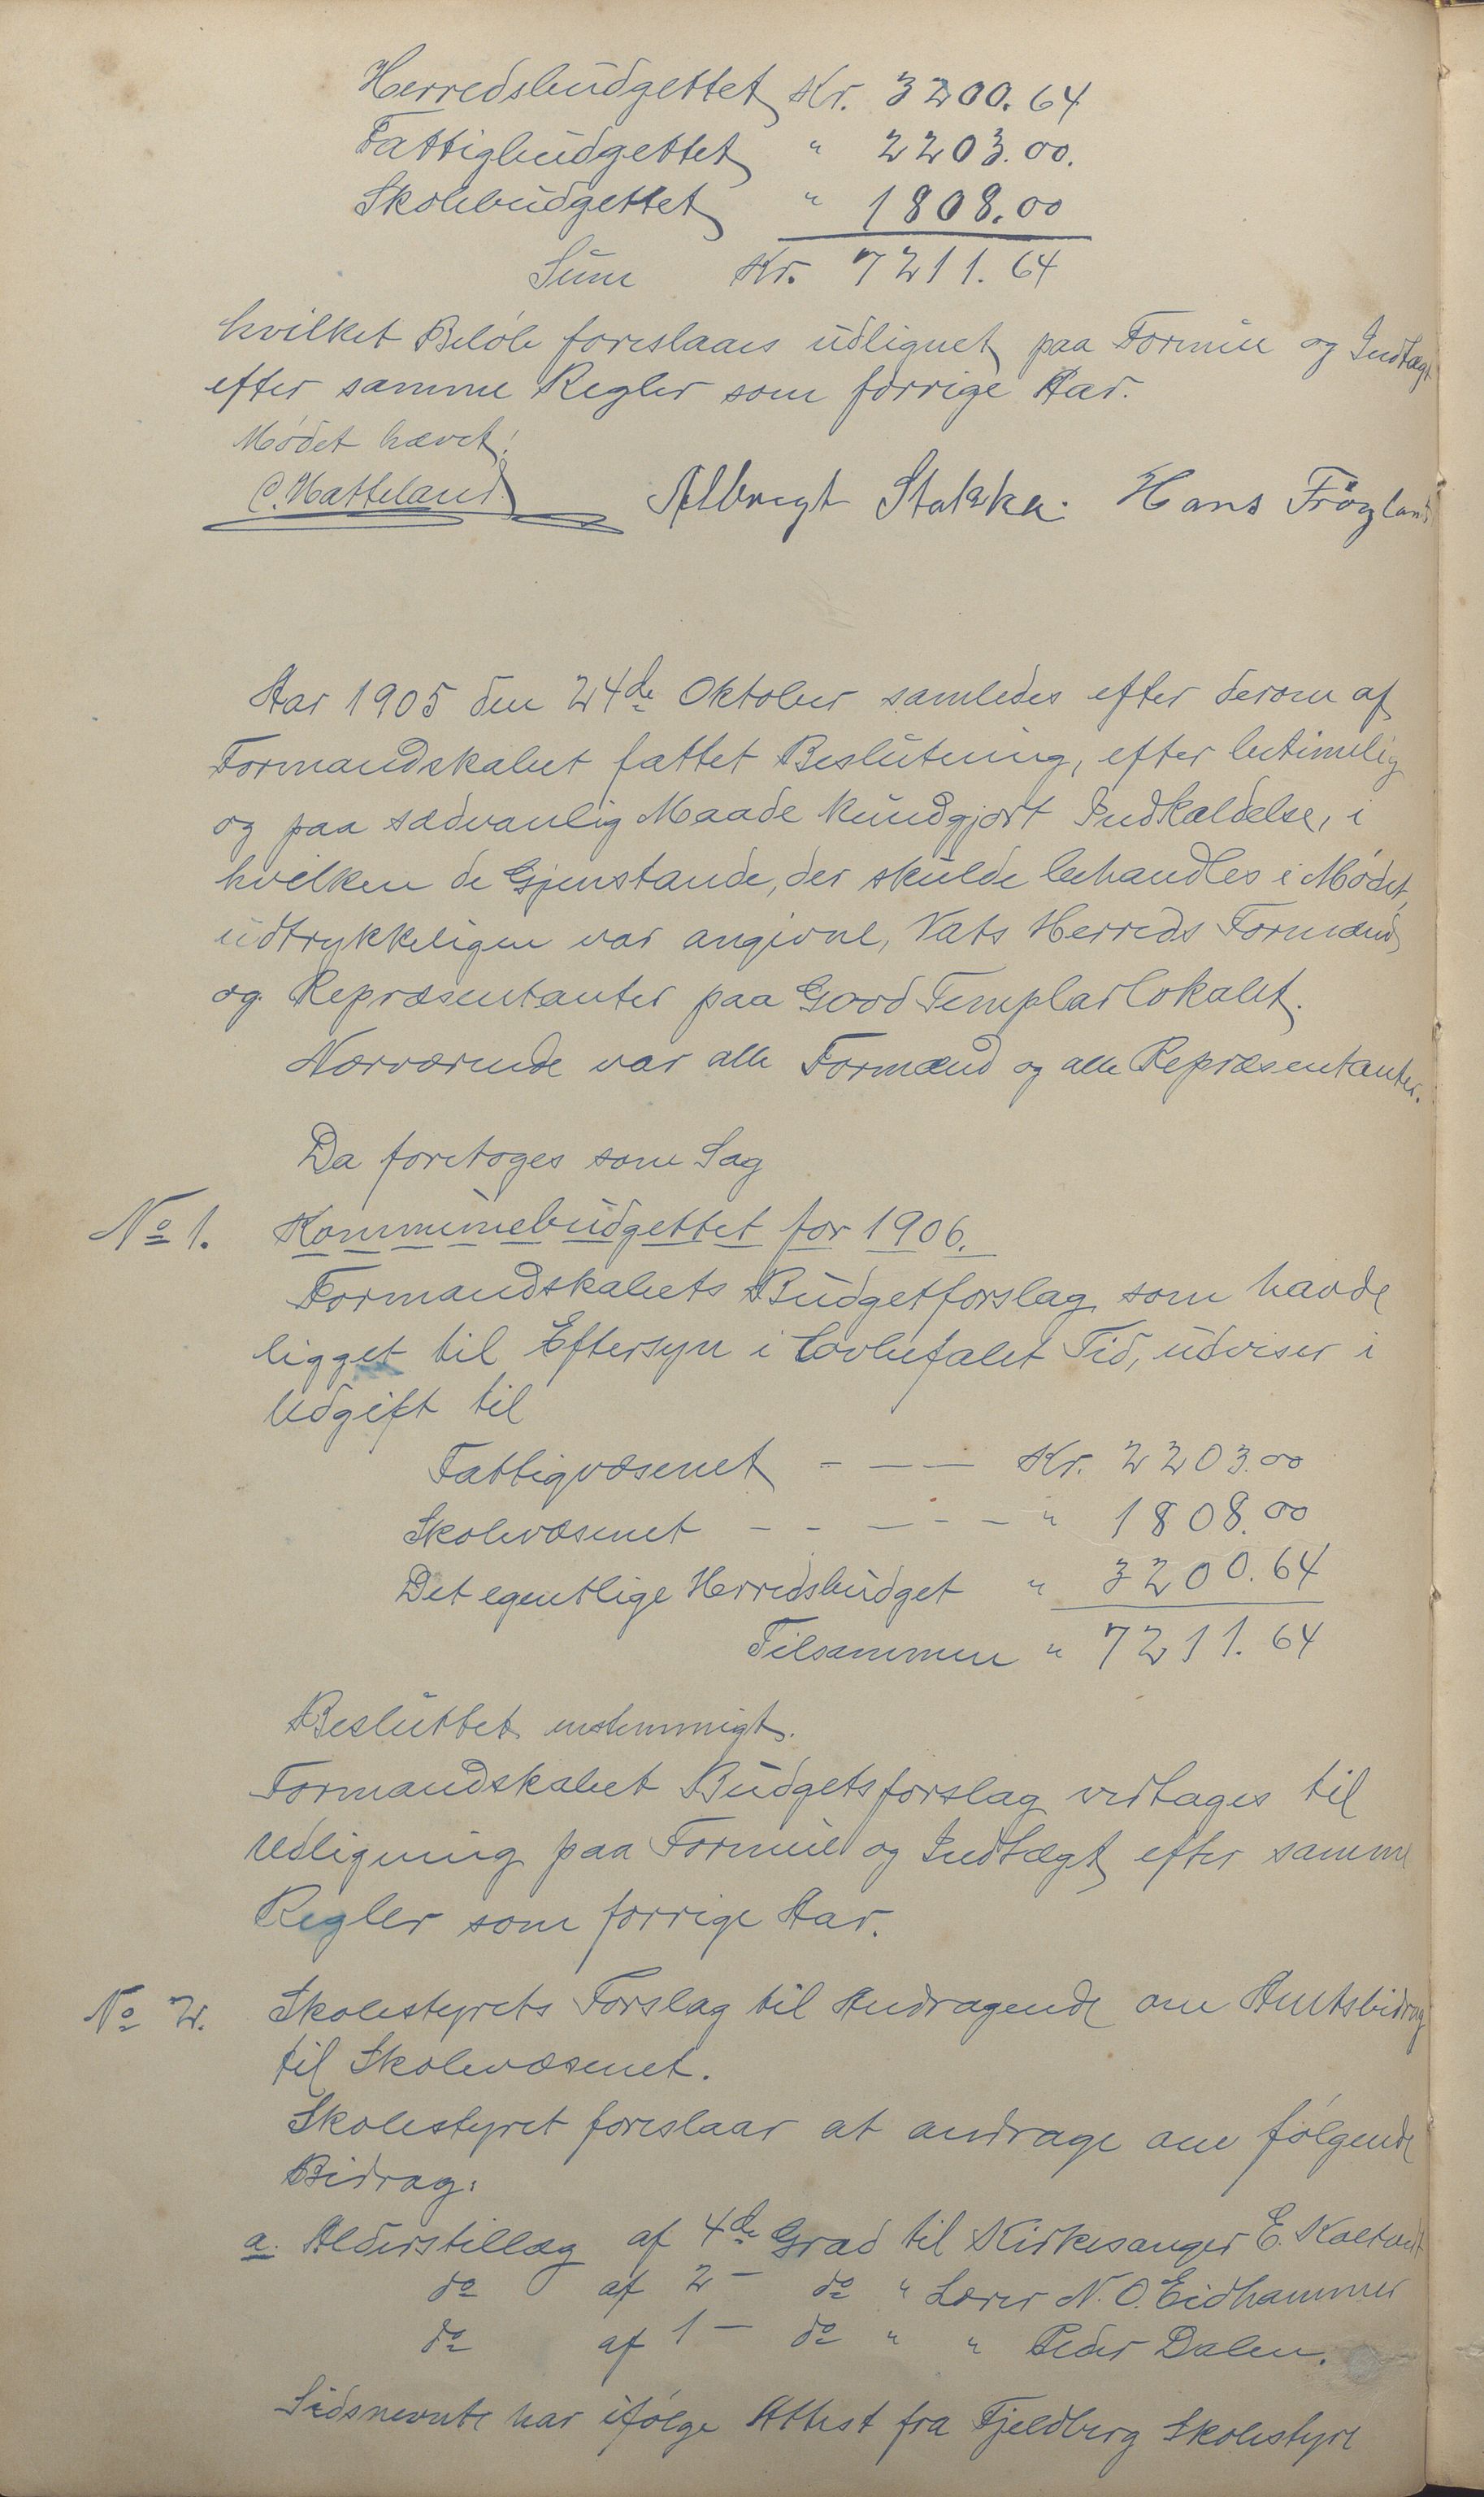 Herredsbudgettet Kr. 3200.64
Fattigbudgettet " 2203.00.
Skolebudgettet " 1808.00
Sum Kr. 7211.64
hvilket Beløb foreslaaes udlignet paa Formue og Indtægt
efter samme Regler som forrige Aar.
Mødet hævet!
C. Hatteland. Albregt Stakka. Hans Frögland
Aar 1905 den 24de Oktober samledes efter derom af
Formandskabet fattet Beslutning, efter betimelig
og paa sædvanlig Maade kundgjort Indkaldelse, i
hvilken de Gjenstande, der skulde behandles i Mødet,
udtrykkeligen var angivne, Vats Herreds Formænd
og Repræsentanter paa Good Templarlokalet.
Nærværende var alle Formænd og alle Repræsentanter.
Da foretoges som Sag
No 1. Kommunebudgettet for 1906.
Formandskabets Budgetforslag som havde
ligget til Eftersyn i lovbefalet Tid, udviser i
Udgift til
Fattigvæsenet - — — Kr. 2203.00
Skolevæsenet - - — - — " 1808.00
Det egentlige Herredsbudget " 3200.64
Tilsammen " 7211.64
Besluttet enstemmigt.
Formandskabet Budgetsforslag vedtages til
Udligning paa Formue og Indtægt efter samme
Regler som forrige Aar.
No 2. Skolestyrets Forslag til Andragende om Amtsbidrag
til Skolevæsenet.
Skolestyret foreslaar at andrage om følgende
Bidrag:
a. Alderstillæg af 4de Grad til Kirkesanger E. Kaltvedt
do af 2 — do " Lærer N. O. Eidhammer
do af 1 — do " " Peder Dalen.
Sidsnevnte har ifølge Attest fra Fjeldberg Skolestyre